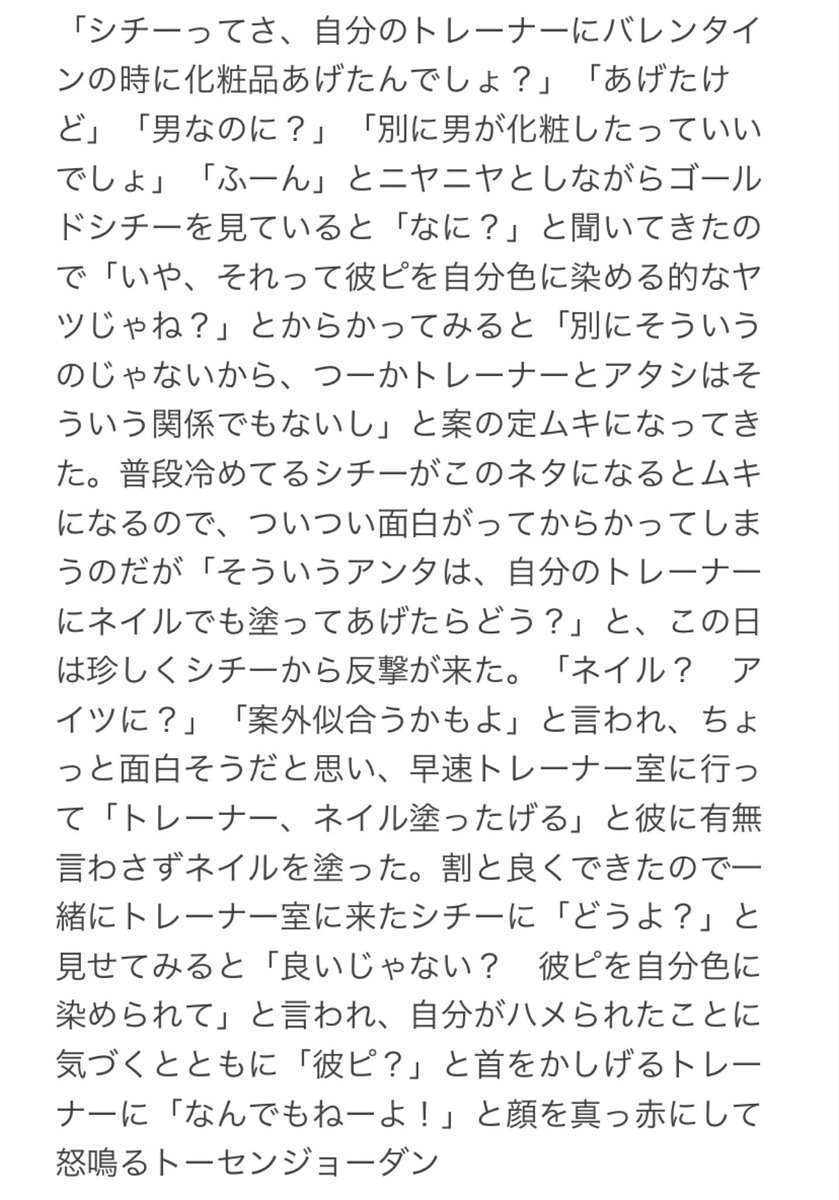 「シチーってさ、自分のトレーナーにバレンタイ
ンの時に化粧品あげたんでしょ？」「あげたけ
ど」「男なのに？」「別に男が化粧したっていい
でしょ」「ふーん」とニヤニヤとしながらゴール
ドシチーを見ていると「なに？」と聞いてきたの
で「いや、それって彼ピを自分色に染める的なヤ
ツじゃね？」とからかってみると「別にそういう
のじゃないから、つーかトレーナーとアタシはそ
ういう関係でもないし」と案の定ムキになってき
た。普段冷めてるシチーがこのネタになるとムキ
になるので、ついつい面白がってからかってしま
うのだが「そういうアンタは、自分のトレーナー
にネイルでも塗ってあげたらどう？」と、この日
は珍しくシチーから反撃が来た。「ネイル？　ア
イツに？」「案外似合うかもよ」と言われ、ちょ
っと面白そうだと思い、早速トレーナー室に行っ
て「トレーナー、ネイル塗ったげる」と彼に有無
言わさずネイルを塗った。割と良くできたので一
緒にトレーナー室に来たシチーに「どうよ？」と
見せてみると「良いじゃない？　彼ピを自分色に
染められて」と言われ、自分がハメられたことに
気づくとともに「彼ピ？」と首をかしげるトレー
ナーに「なんでもねーよ！」と顔を真っ赤にして
怒鳴るトーセンジョーダン